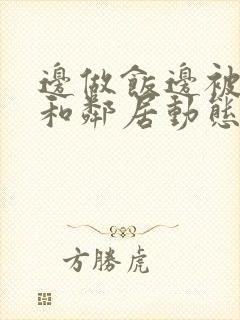 邊做飯邊被
和鄰居動態
方勝虎